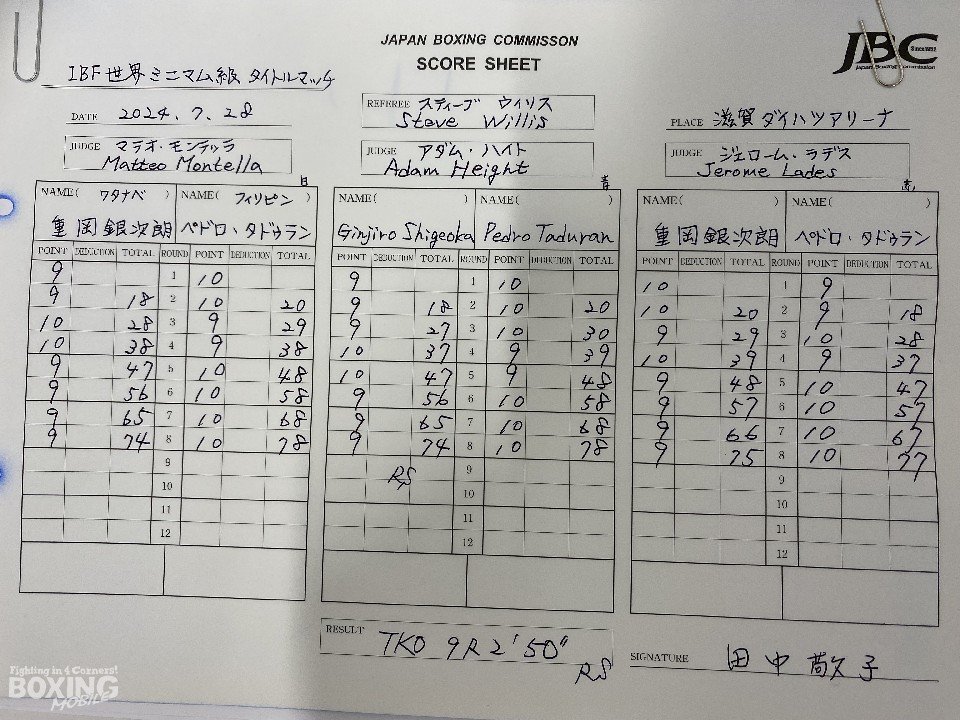 JAPAN BOXING COMMISSON
SCORE SHEET
JBC
Since 1952
Japan Boxing Commission
IBF世界ミニマム級タイトルマッチ
DATE 2024.7.28
REFEREE スティーブ ウィリス
Steve Willis
PLACE 滋賀ダイハツアリーナ
JUDGE マテオ・モンテッラ
Matteo Montella
JUDGE アダム・ハイト
Adam Height
JUDGE ジェローム・ラデス
Jerome Lades
NAME( ワタナベ ) NAME( フィリピン )
重岡銀次朗 ペドロ・タドゥラン
POINT DEDUCTION TOTAL ROUND POINT DEDUCTION TOTAL
9 1 10
9 18 2 10 20
10 28 3 9 29
10 38 4 9 38
9 47 5 10 48
9 56 6 10 58
9 65 7 10 68
9 74 8 10 78
9
10
11
12
青
NAME( ) NAME( )
Ginjiro Shigeoka Pedro Taduran
POINT DEDUCTION TOTAL ROUND POINT DEDUCTION TOTAL
9 1 10
9 18 2 10 20
9 27 3 10 30
10 37 4 9 39
10 47 5 9 48
9 56 6 10 58
9 65 7 10 68
9 74 8 10 78
RS 9
10
11
12
NAME( ) NAME( )
重岡銀次朗 ペドロ・タドゥラン
POINT DEDUCTION TOTAL ROUND POINT DEDUCTION TOTAL
10 1 9
10 20 2 9 18
9 29 3 10 28
10 39 4 9 37
9 48 5 10 47
9 57 6 10 57
9 66 7 10 67
9 75 8 10 77
9
10
11
12
RESULT TKO 9R 2'50"
RS
SIGNATURE 田中
子
Fighting in 4 Corners!
BOXING
MOBILE